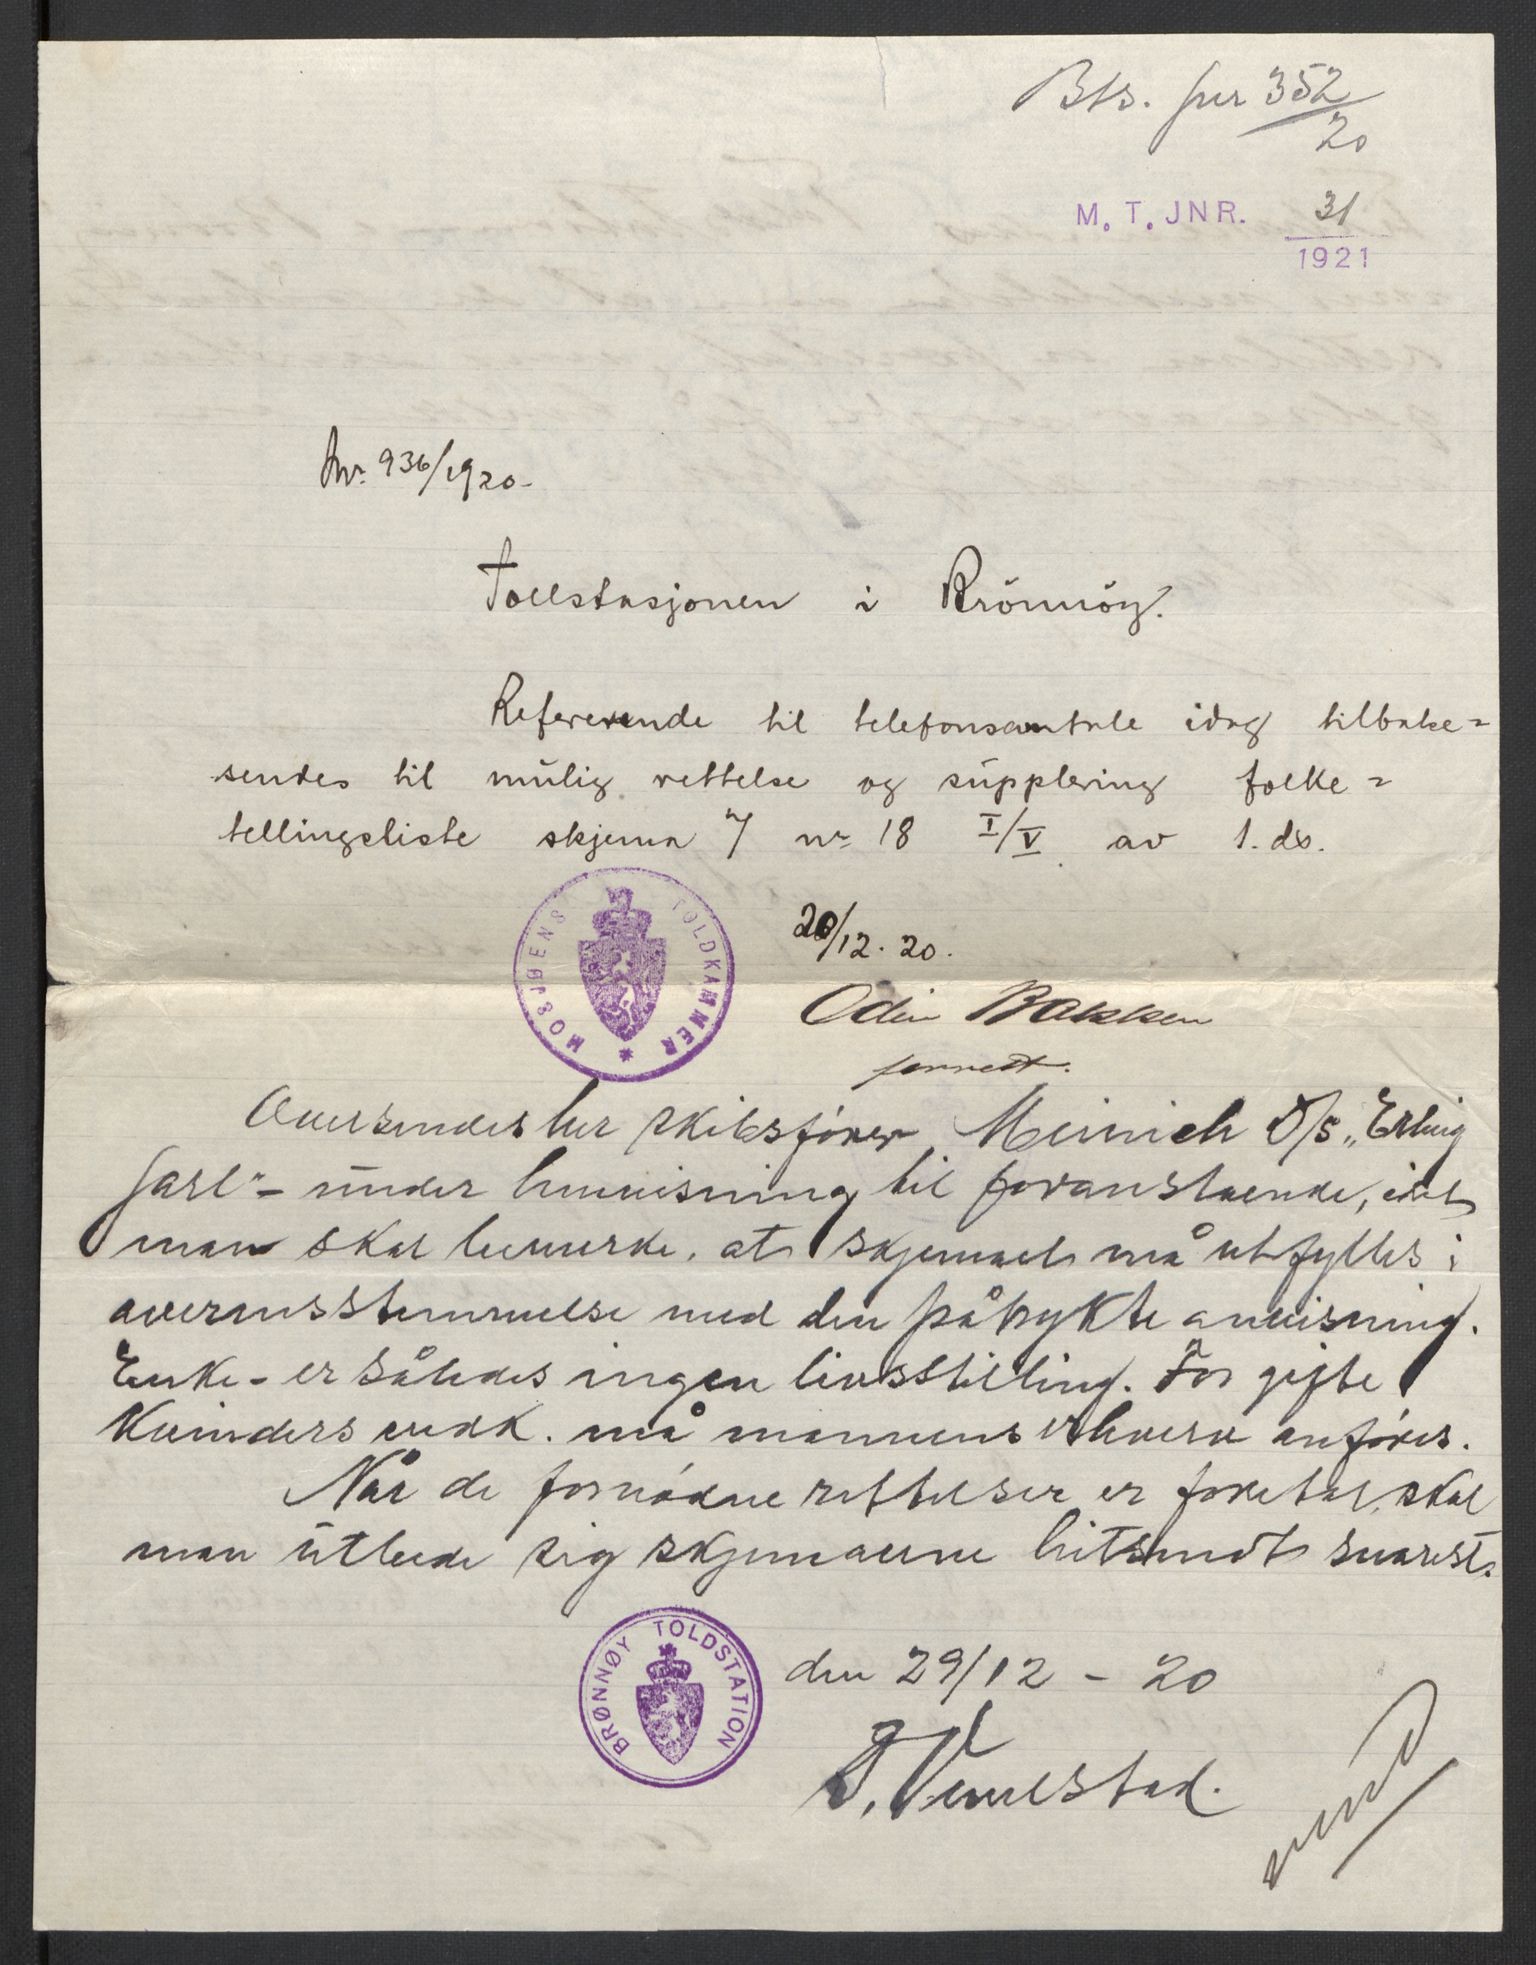 Bts. jnr 352/20
M. T. JNR. 31/1921
Jnr. 936/1920.
Tollstasjonen i Brönnöy.
Refererende til telefonsamtale idag tilbake=
sendes til mulig rettelse og supplering folke=
tellingsliste skjema 7 nr 18 I/V av 1. ds.
MOSJØENS TOLDKAMMER
20/12. 20.
Odin Bakken
Oversendes her skibsfører Meinich D/s „Erling
Jarl" - under henvisning til foranstående, idet
man skal bemerke, at skjemaet må utfylles i
overensstemmelse med den påtrykte anvisning.
Enke - er således ingen livsstilling. For gifte
kvinders vedk. må mannens erhverv anføres.
Når de fornødne rettelser er foretat, skal
man utbede sig skjemaerne hitsendt snarest.
BRØNNØY TOLDSTATION
den 29/12 - 20